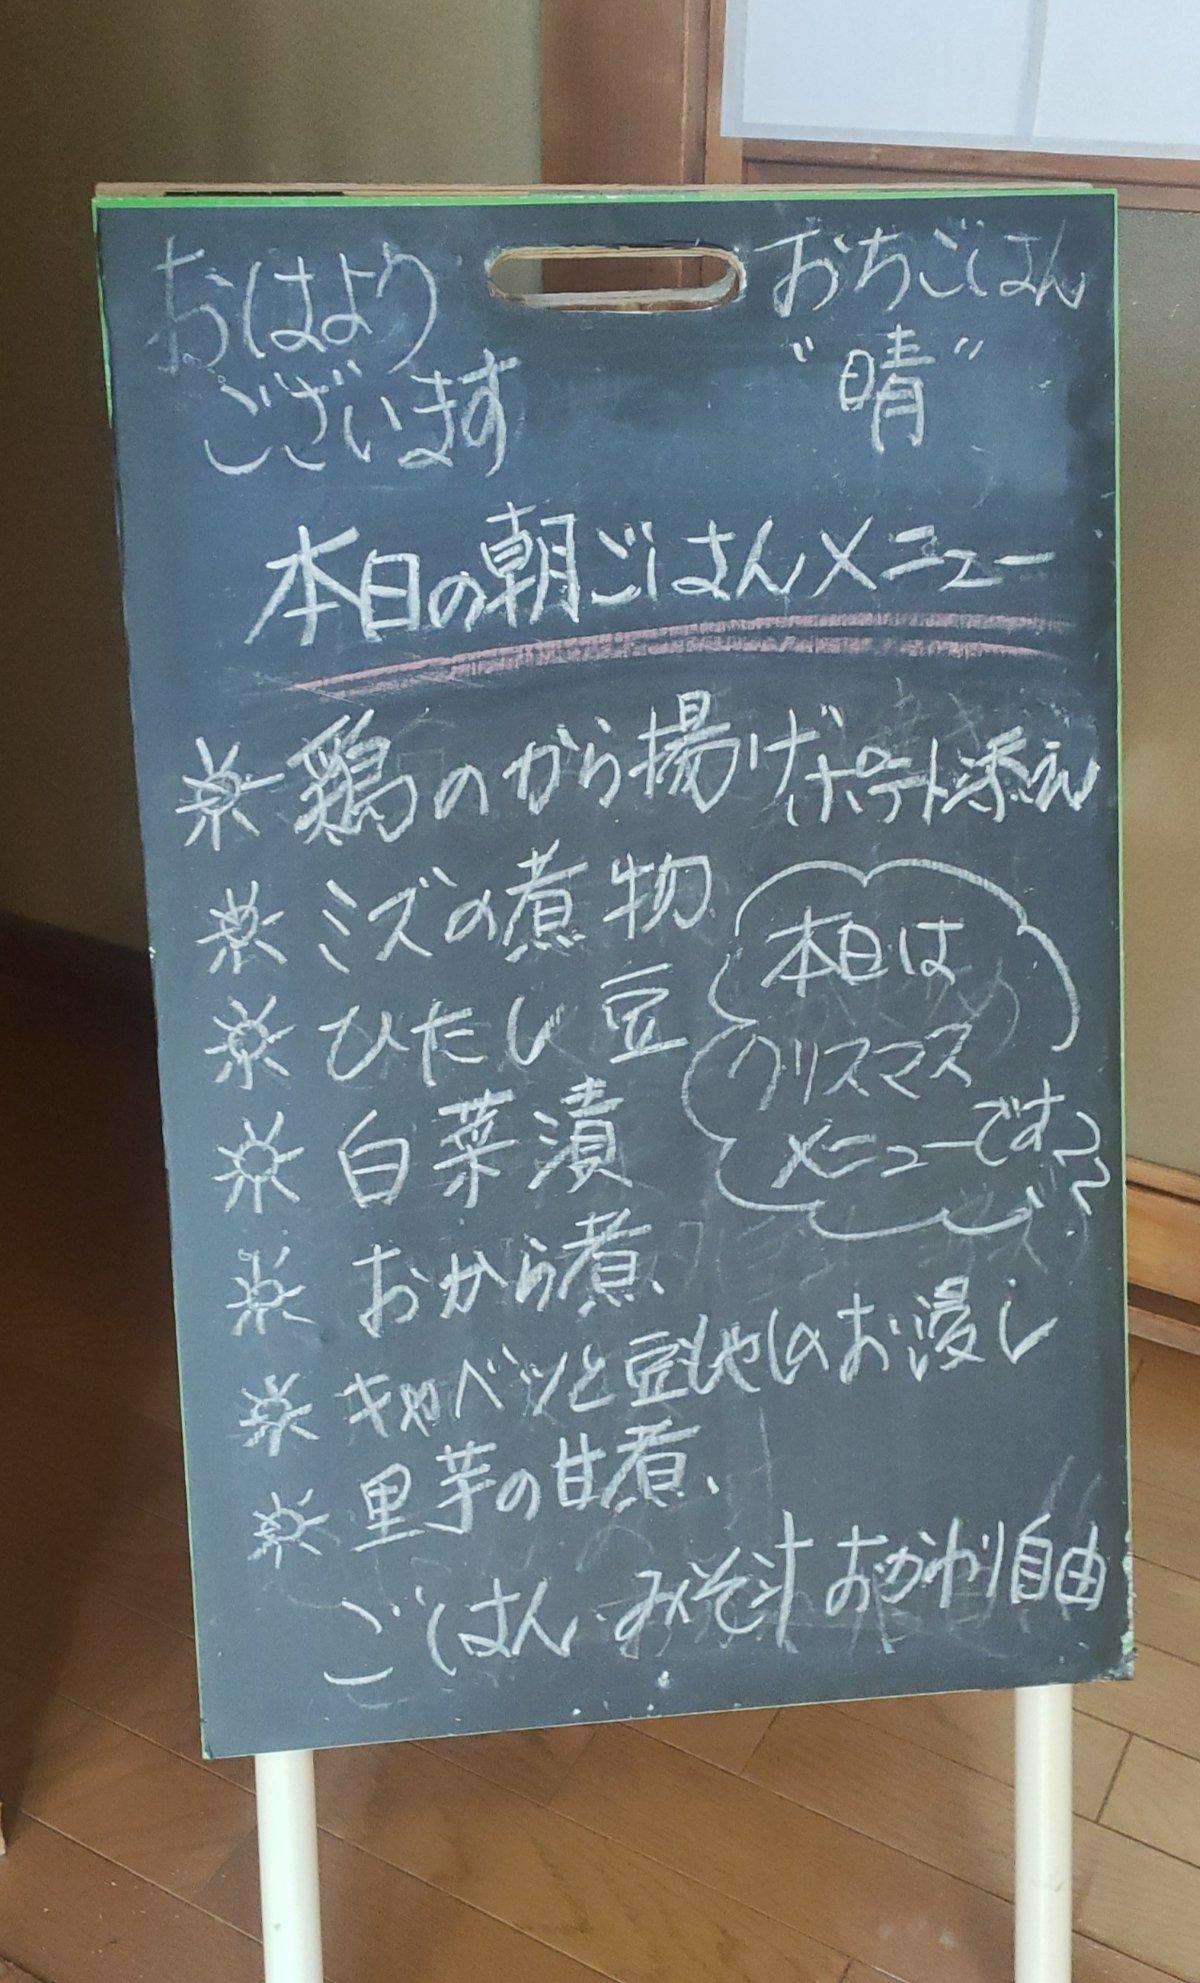 おはよう
ございます
おちごはん
"晴"
本日の朝ごはんメニュー
鶏のから揚げポテト添え
ミズの煮物
ひたし豆
白菜漬
おから煮
キャベツと豆もやしのお浸し
里芋の甘煮
本日は
クリスマス
メニューです
ごはん、みそ汁おかわり自由